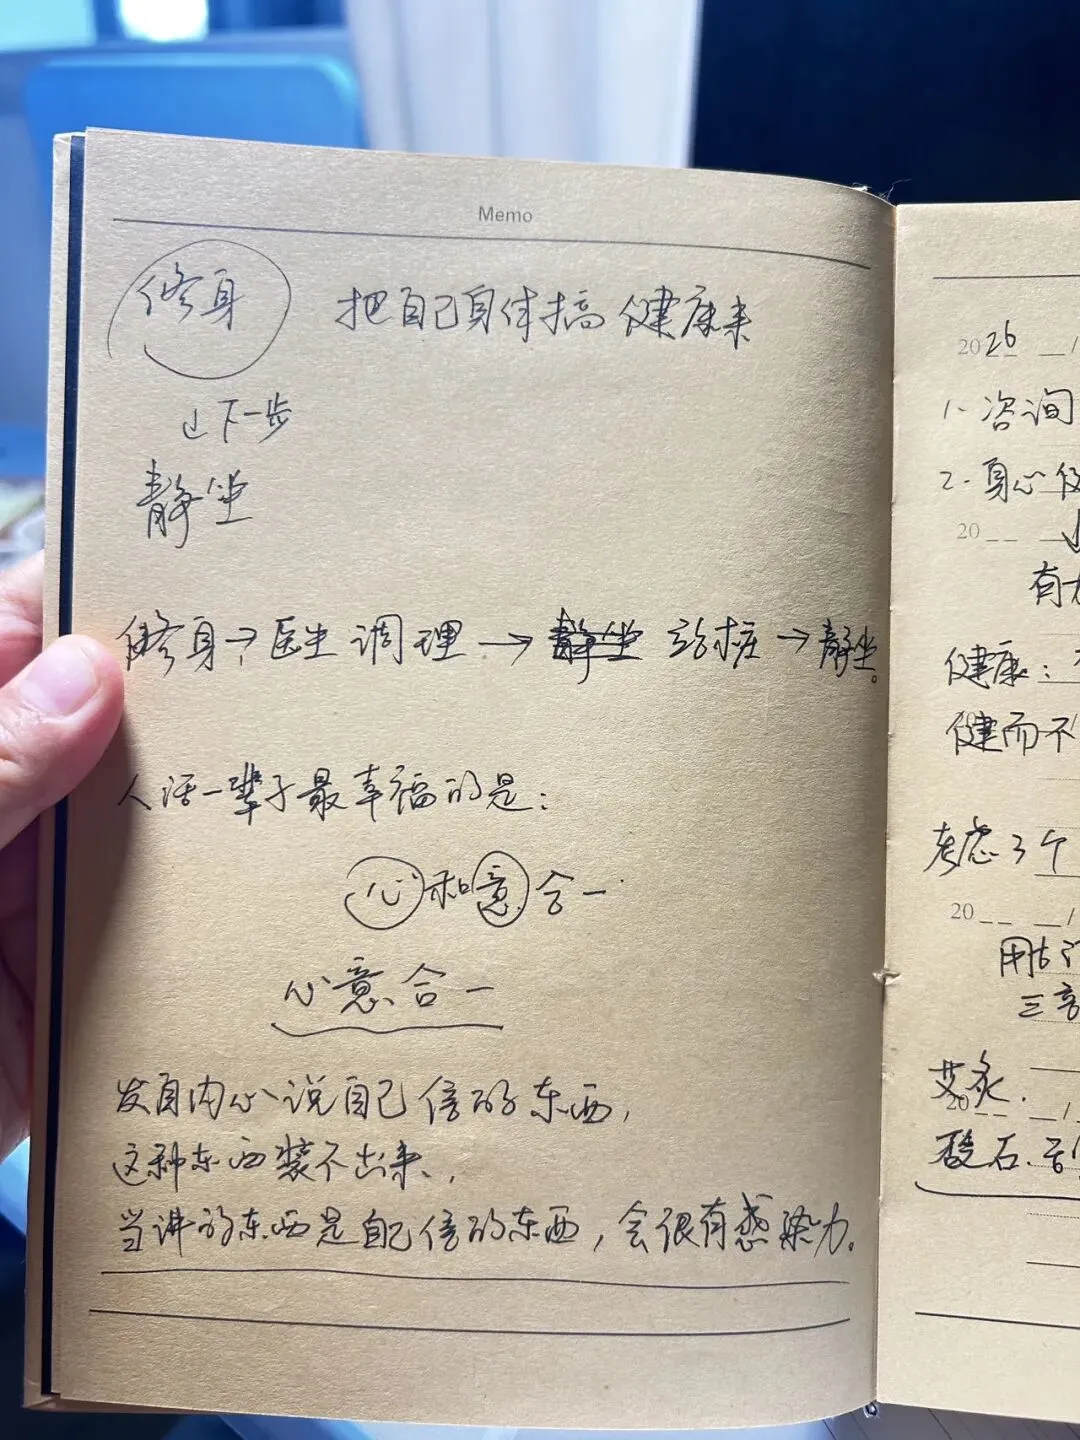 Memo
修身 把自己身体搞健康来
↓下一步
静坐
修身→医生调理→静坐 站桩→静坐。
人活一辈子最幸福的是：
心和意合一
心意合一
发自内心说自己信的东西，
这种东西装不出来，
当讲的东西是自己信的东西，会很有感染力。
2026 __/
1. 咨询
2. 身心
20__
有
健康：
健而不
考虑3个
20__ __/
三
艾灸.
20__ __/
酸石.